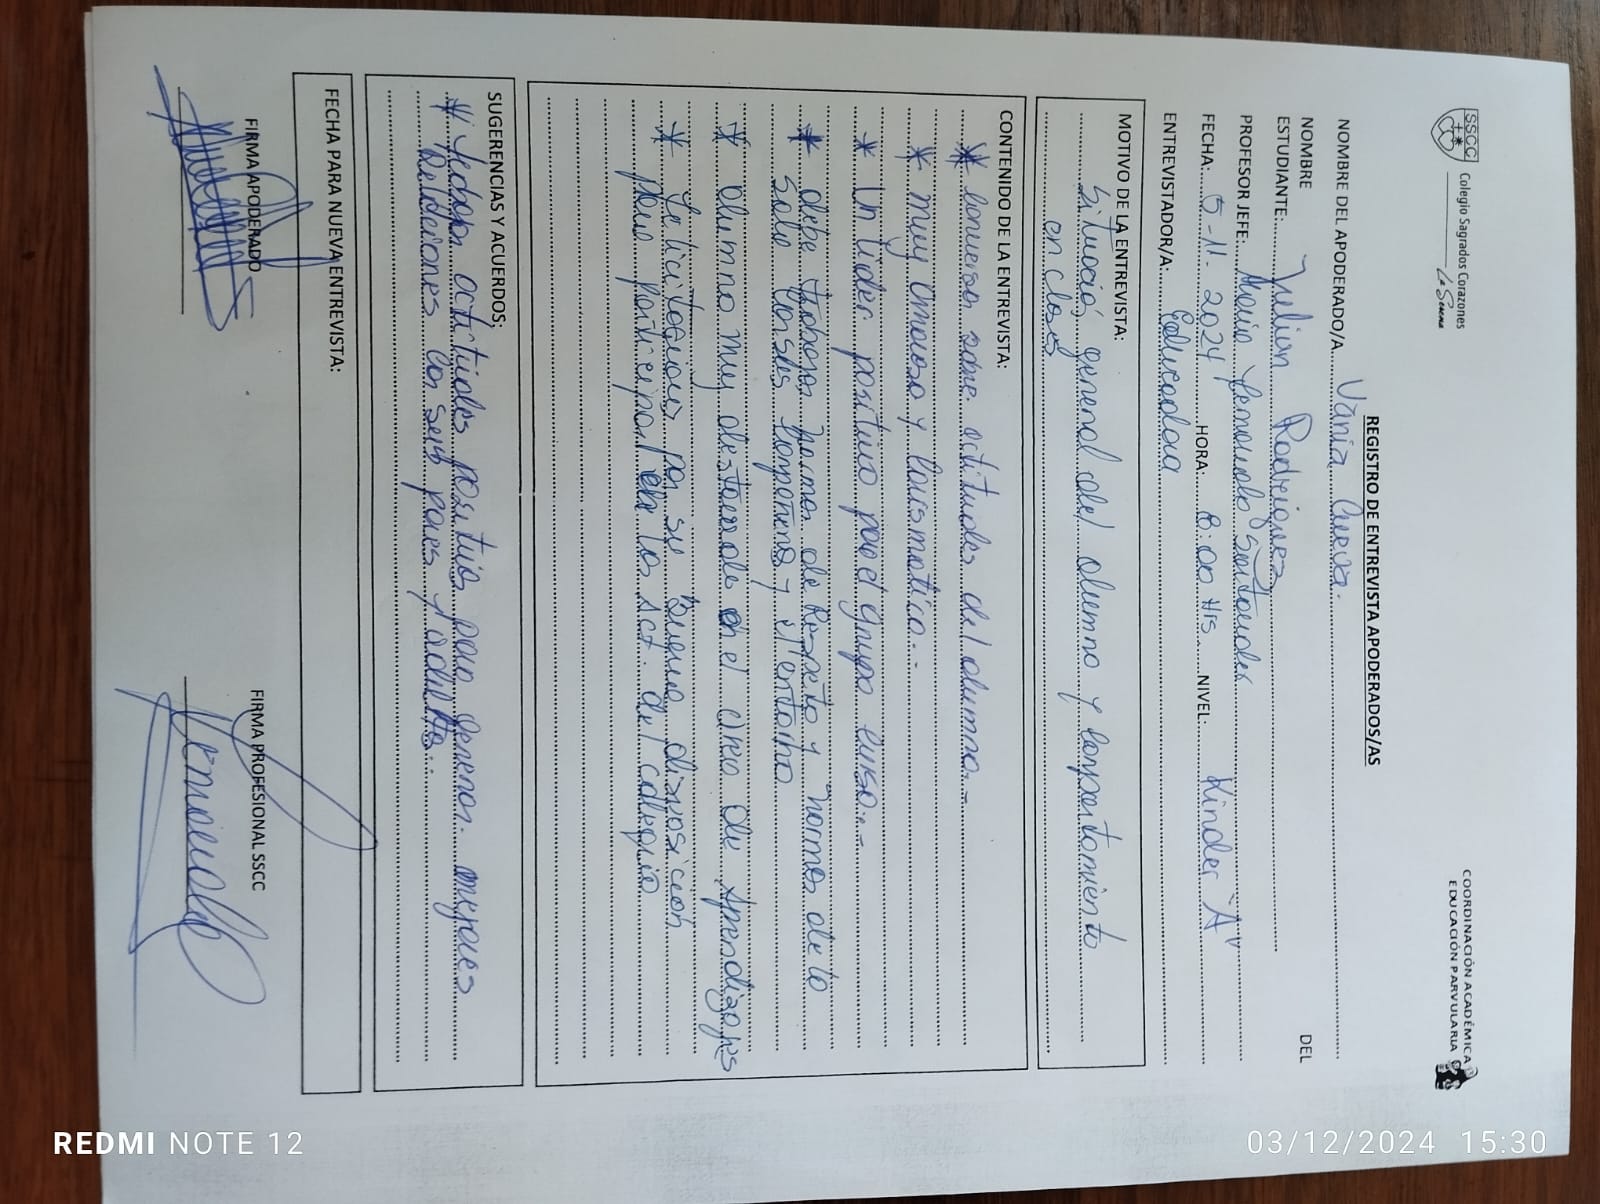 SSCC
Colegio Sagrados Corazones
La Serena
COORDINACIÓN ACADÉMICA
EDUCACIÓN PARVULARIA
REGISTRO DE ENTREVISTA APODERADOS/AS
NOMBRE DEL APODERADO/A Vania
NOMBRE DEL
ESTUDIANTE: Julian Rodriguez
PROFESOR JEFE: Santander
FECHA: 5-11-2024 HORA: 8:00 Hrs. NIVEL: Kinder "A"
ENTREVISTADOR/A: Educadora
MOTIVO DE LA ENTREVISTA:
Situació general del alumno y comportamiento
en clases
CONTENIDO DE LA ENTREVISTA:
* conversar sobre actitudes del alumno.-
* muy amoroso y carismatico.-
* Un lider positivo para el grupo curso.-
* debe trabajar normas de Respeto y normas de la
sala con sus compañeros y el entorno
* alumno muy destacado en el area de Aprendizajes
* Felicitaciones por su Buena disposicion
para participar en las act. del colegio.
SUGERENCIAS Y ACUERDOS:
* actitudes positivas para mejores
Relaciones con sus pares y adultos.
FECHA PARA NUEVA ENTREVISTA:
FIRMA APODERADO
FIRMA PROFESIONAL SSCC
REDMI NOTE 12
03/12/2024 15:30